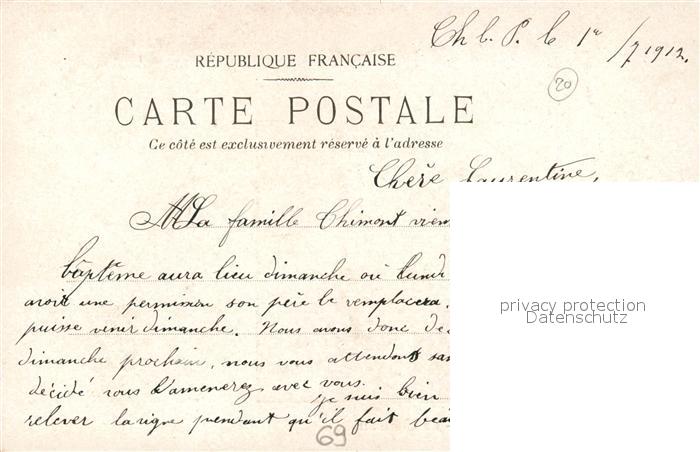 Ch l. P. le 1er /7 1912.
RÉPUBLIQUE FRANÇAISE
20
CARTE POSTALE
Ce côté est exclusivement réservé à l'adresse
Chère Laurentine,
La famille Chimont vien
baptême aura lieu dimanche où lundi
avoir une permission son père le remplacera.
puisse venir dimanche. Nous avons donc de
dimanche prochain, nous vous attendons san
décidé vous l'amenerez avec vous.
je suis bien
relever la vigne pendant qu'il fait beau
69
privacy protection
Datenschutz